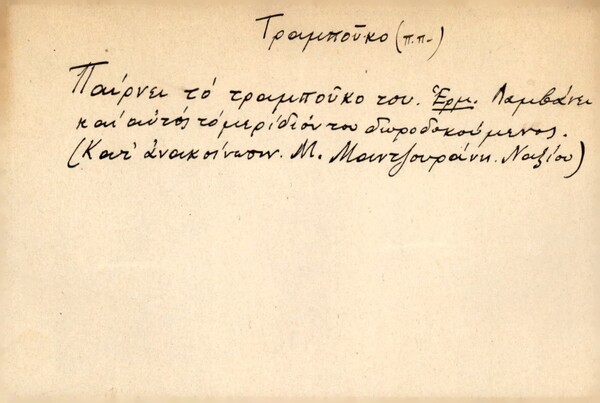 Τραμποῦκο (π.π.)
Παίρνει τό τραμποῦκο του. Ἑρμ. Λαμβάνει
καί αὐτός τό μερίδιόν του δωροδοκούμενος.
(Κατ' ἀνακοίνωσιν. Μ. Μαντζουράνη. Ναξίου)